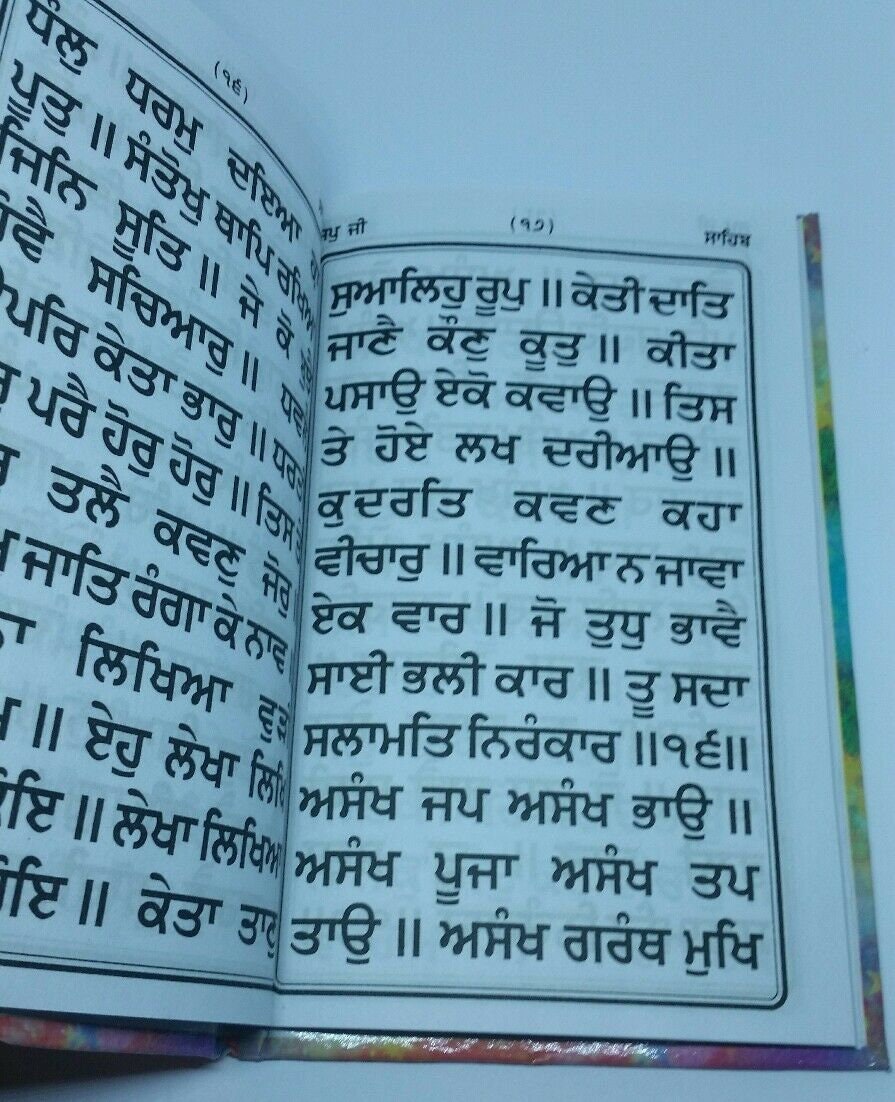 (੧੬)
ਧੌਲੁ ਧਰਮੁ ਦਇਆ
ਪੂਤੁ ॥ ਸੰਤੋਖੁ ਥਾਪਿ ਰਖਿਆ
ਜਿਨਿ ਸੂਤਿ ॥ ਜੇ ਕੋ
ਸਚਿਆਰੁ ॥
ਕੇਤਾ ਭਾਰੁ ॥
ਪਰੈ ਹੋਰੁ ਹੋਰੁ ॥ ਤਿਸ ਤੇ
ਤਲੈ ਕਵਣੁ ਜੋਰੁ
ਜਾਤਿ ਰੰਗਾ ਕੇ ਨਾਵ
ਲਿਖਿਆ
॥ ਏਹੁ ਲੇਖਾ ਲਿਖਿ
॥ ਲੇਖਾ ਲਿਖਿਆ
॥ ਕੇਤਾ ਤਾਣੁ
ਜੀ (੧੭) ਸਾਹਿਬ
ਸੁਆਲਿਹੁ ਰੂਪੁ ॥ ਕੇਤੀ ਦਾਤਿ
ਜਾਣੈ ਕੌਣੁ ਕੂਤੁ ॥ ਕੀਤਾ
ਪਸਾਉ ਏਕੋ ਕਵਾਉ ॥ ਤਿਸ
ਤੇ ਹੋਏ ਲਖ ਦਰੀਆਉ ॥
ਕੁਦਰਤਿ ਕਵਣ ਕਹਾ
ਵੀਚਾਰੁ ॥ ਵਾਰਿਆ ਨ ਜਾਵਾ
ਏਕ ਵਾਰ ॥ ਜੋ ਤੁਧੁ ਭਾਵੈ
ਸਾਈ ਭਲੀ ਕਾਰ ॥ ਤੂ ਸਦਾ
ਸਲਾਮਤਿ ਨਿਰੰਕਾਰ ॥੧੬॥
ਅਸੰਖ ਜਪ ਅਸੰਖ ਭਾਉ ॥
ਅਸੰਖ ਪੂਜਾ ਅਸੰਖ ਤਪ
ਤਾਉ ॥ ਅਸੰਖ ਗਰੰਥ ਮੁਖਿ